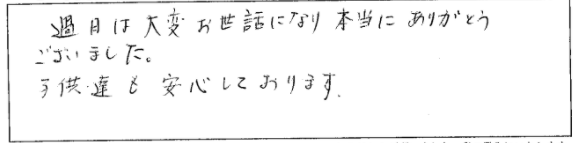 過日は大変お世話になり本当にありがとう
ございました。
子供達も安心しております.